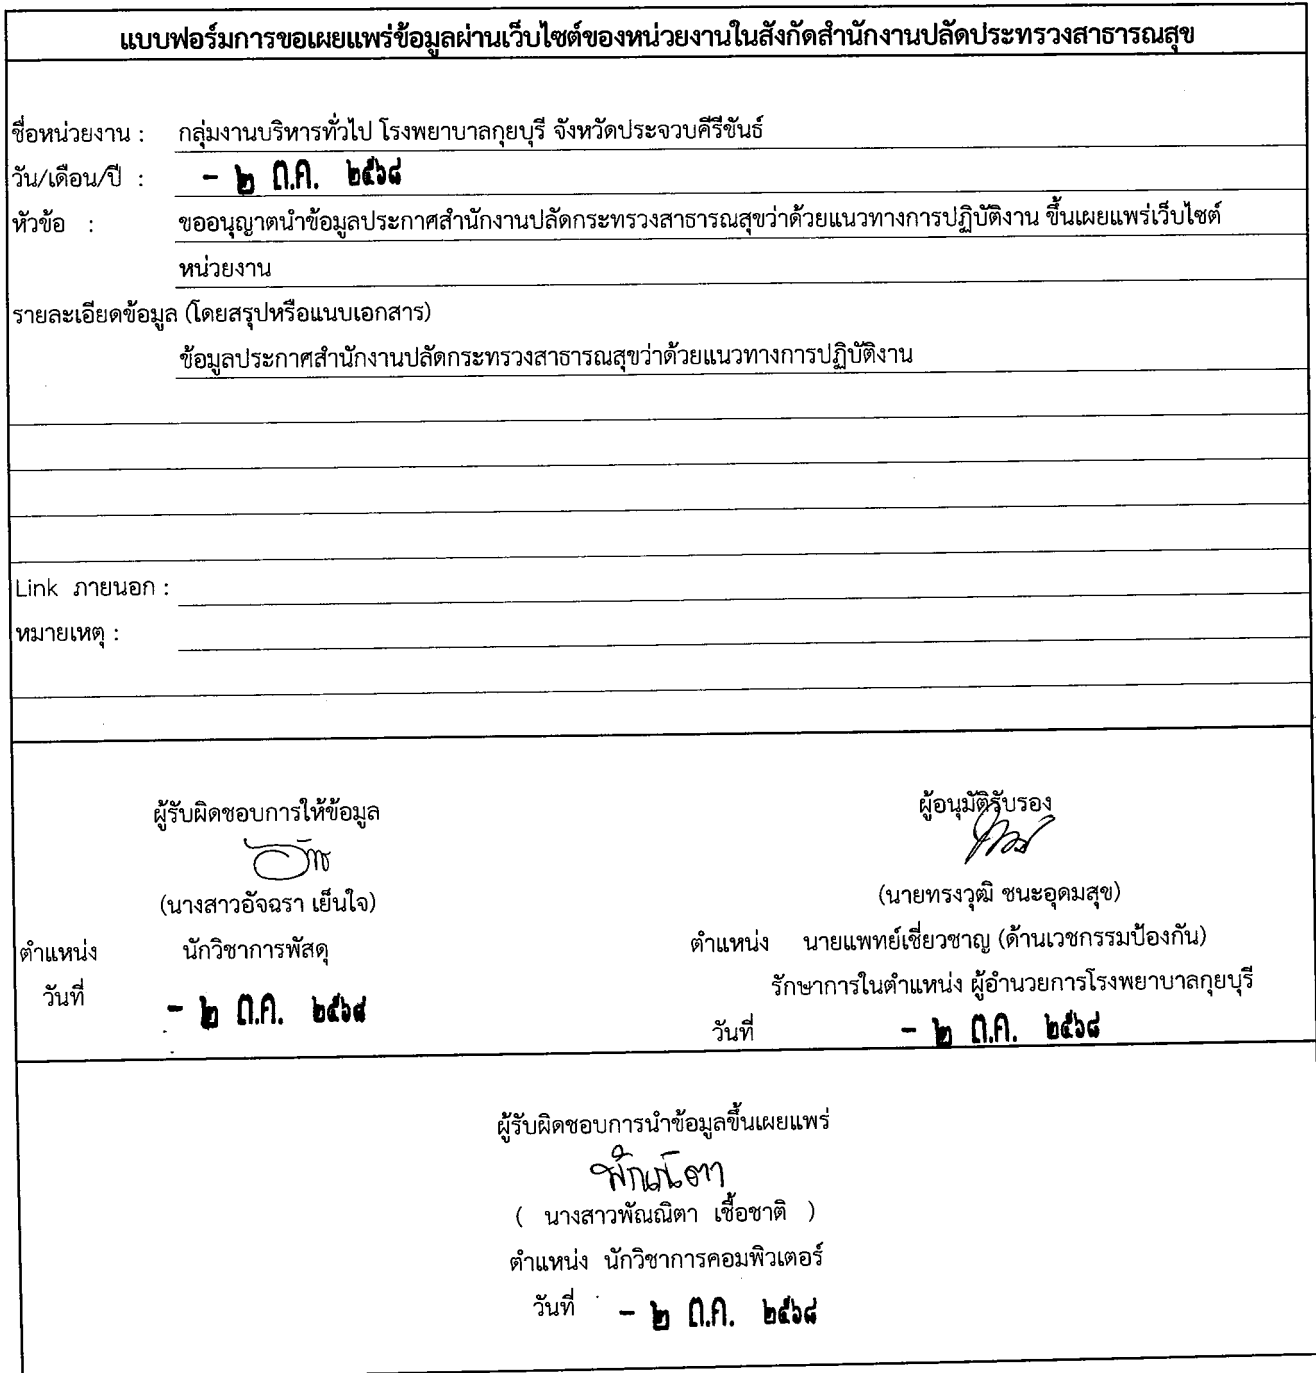 แบบฟอร์มการขอเผยแพร่ข้อมูลผ่านเว็บไซต์ของหน่วยงานในสังกัดสำนักงานปลัดประทรวงสาธารณสุข
ชื่อหน่วยงาน : กลุ่มงานบริหารทั่วไป โรงพยาบาลกุยบุรี จังหวัดประจวบคีรีขันธ์
วัน/เดือน/ปี : - ๒ ต.ค. ๒๕๖๘
หัวข้อ : ขออนุญาตนำข้อมูลประกาศสำนักงานปลัดกระทรวงสาธารณสุขว่าด้วยแนวทางการปฏิบัติงาน ขึ้นเผยแพร่เว็บไซต์
หน่วยงาน
รายละเอียดข้อมูล (โดยสรุปหรือแนบเอกสาร)
ข้อมูลประกาศสำนักงานปลัดกระทรวงสาธารณสุขว่าด้วยแนวทางการปฏิบัติงาน
Link ภายนอก :
หมายเหตุ :
ผู้รับผิดชอบการให้ข้อมูล
(นางสาวอัจฉรา เย็นใจ)
ตำแหน่ง นักวิชาการพัสดุ
วันที่ - ๒ ต.ค. ๒๕๖๘
ผู้อนุมัติรับรอง
(นายทรงวุฒิ ชนะอุดมสุข)
ตำแหน่ง นายแพทย์เชี่ยวชาญ (ด้านเวชกรรมป้องกัน)
รักษาการในตำแหน่ง ผู้อำนวยการโรงพยาบาลกุยบุรี
วันที่ - ๒ ต.ค. ๒๕๖๘
ผู้รับผิดชอบการนำข้อมูลขึ้นเผยแพร่
พัณณิตา
( นางสาวพัณณิตา เชื้อชาติ )
ตำแหน่ง นักวิชาการคอมพิวเตอร์
วันที่ - ๒ ต.ค. ๒๕๖๘